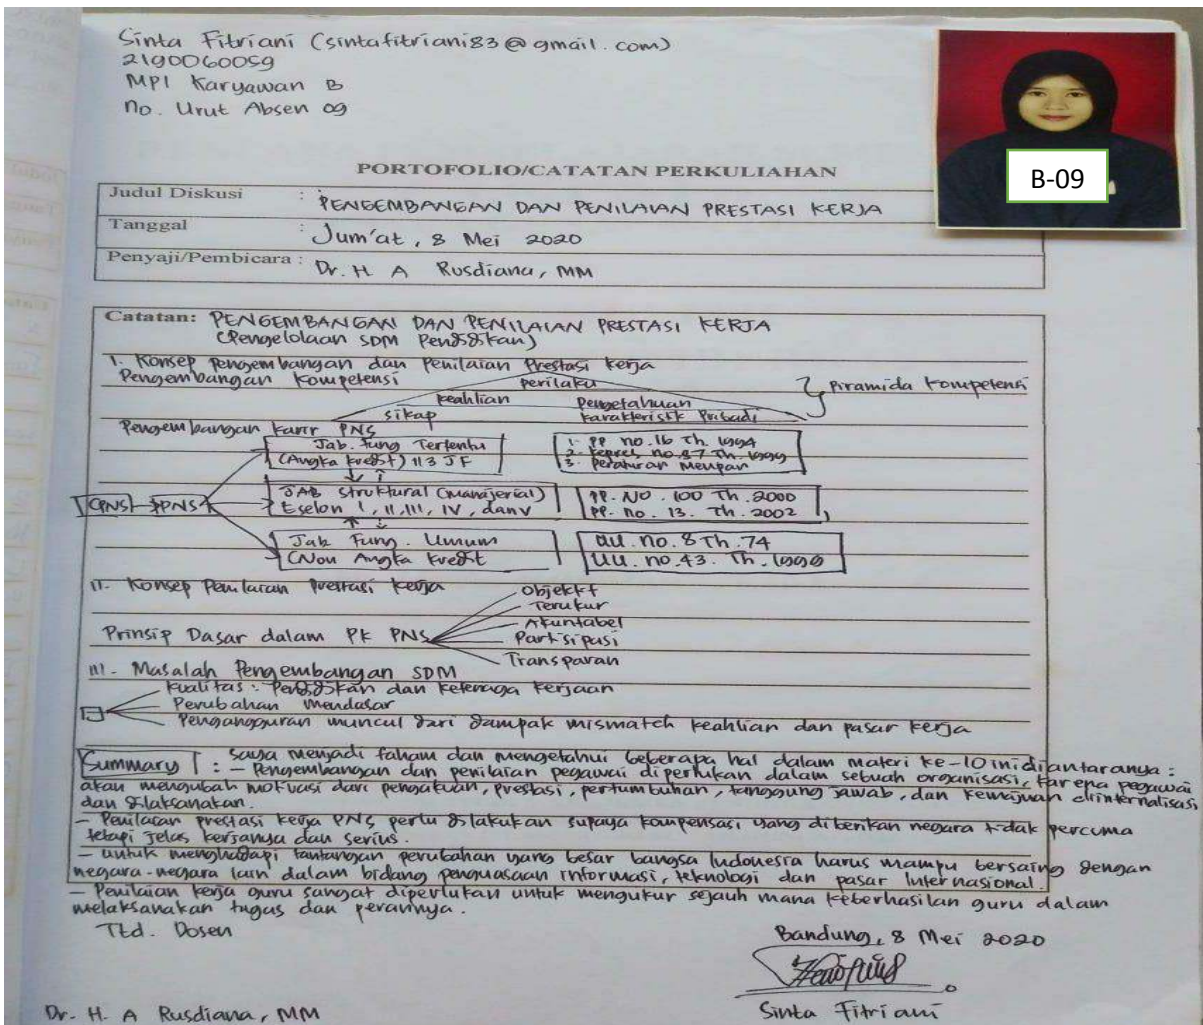 Sinta Fitriani (sintafitriani83@gmail.com)
2190060059
MPI Karyawan B
No. Urut Absen 09
B-09
PORTOFOLIO/CATATAN PERKULIAHAN
Judul Diskusi : PENGEMBANGAN DAN PENILAIAN PRESTASI KERJA
Tanggal : Jum'at, 8 Mei 2020
Penyaji/Pembicara : Dr. H. A Rusdiana, MM
Catatan: PENGEMBANGAN DAN PENILAIAN PRESTASI KERJA
(Pengelolaan SDM Pendidikan)
I. Konsep pengembangan dan Penilaian Prestasi kerja
Pengembangan kompetensi
perilaku
keahlian pengetahuan
sikap karakteristik Pribadi
Piramida kompetensi
Pengembangan karir PNS
Jab. Fung Tertentu
(Angka kredit) 113 JF
1. PP no.16 Th. 1994
2. Kepres no.87 Th. 1999
3. Peraturan Menpan
CPNS PNS
JAB Struktural (Manajerial)
Eselon I, II, III, IV, dan V
PP. NO. 100 Th. 2000
PP. no. 13. Th. 2002
Jab Fung. Umum
(Non Angka kredit
UU. no. 8 Th. 74
UU. no. 43. Th. 1999
II. Konsep Penilaian Prestasi kerja
Prinsip Dasar dalam PK PNS
Objektif
Terukur
Akuntabel
Partisipasi
Transparan
III. Masalah Pengembangan SDM
Kualitas : Pendidikan dan Ketenaga kerjaan
Perubahan mendasar
Pengangguran muncul dari dampak mismatch keahlian dan pasar kerja
Summary : Saya menjadi faham dan mengetahui beberapa hal dalam materi ke-10 ini diantaranya :
– Pengembangan dan penilaian pegawai diperlukan dalam sebuah organisasi, karena pegawai
akan mengubah motivasi dari pengakuan, prestasi, pertumbuhan, tanggung jawab, dan kemajuan diinternalisasi
dan dilaksanakan.
– Penilaian prestasi kerja PNS perlu dilakukan supaya kompensasi yang diberikan negara tidak percuma
tetapi jelas kerjanya dan serius.
– untuk menghadapi tantangan perubahan yang besar bangsa Indonesia harus mampu bersaing dengan
negara-negara lain dalam bidang penguasaan informasi, teknologi dan pasar Internasional.
– Penilaian kerja guru sangat diperlukan untuk mengukur sejauh mana keberhasilan guru dalam
melaksanakan tugas dan perannya.
Ttd. Dosen
Bandung, 8 Mei 2020
Dr. H. A Rusdiana, MM
Sinta Fitriani